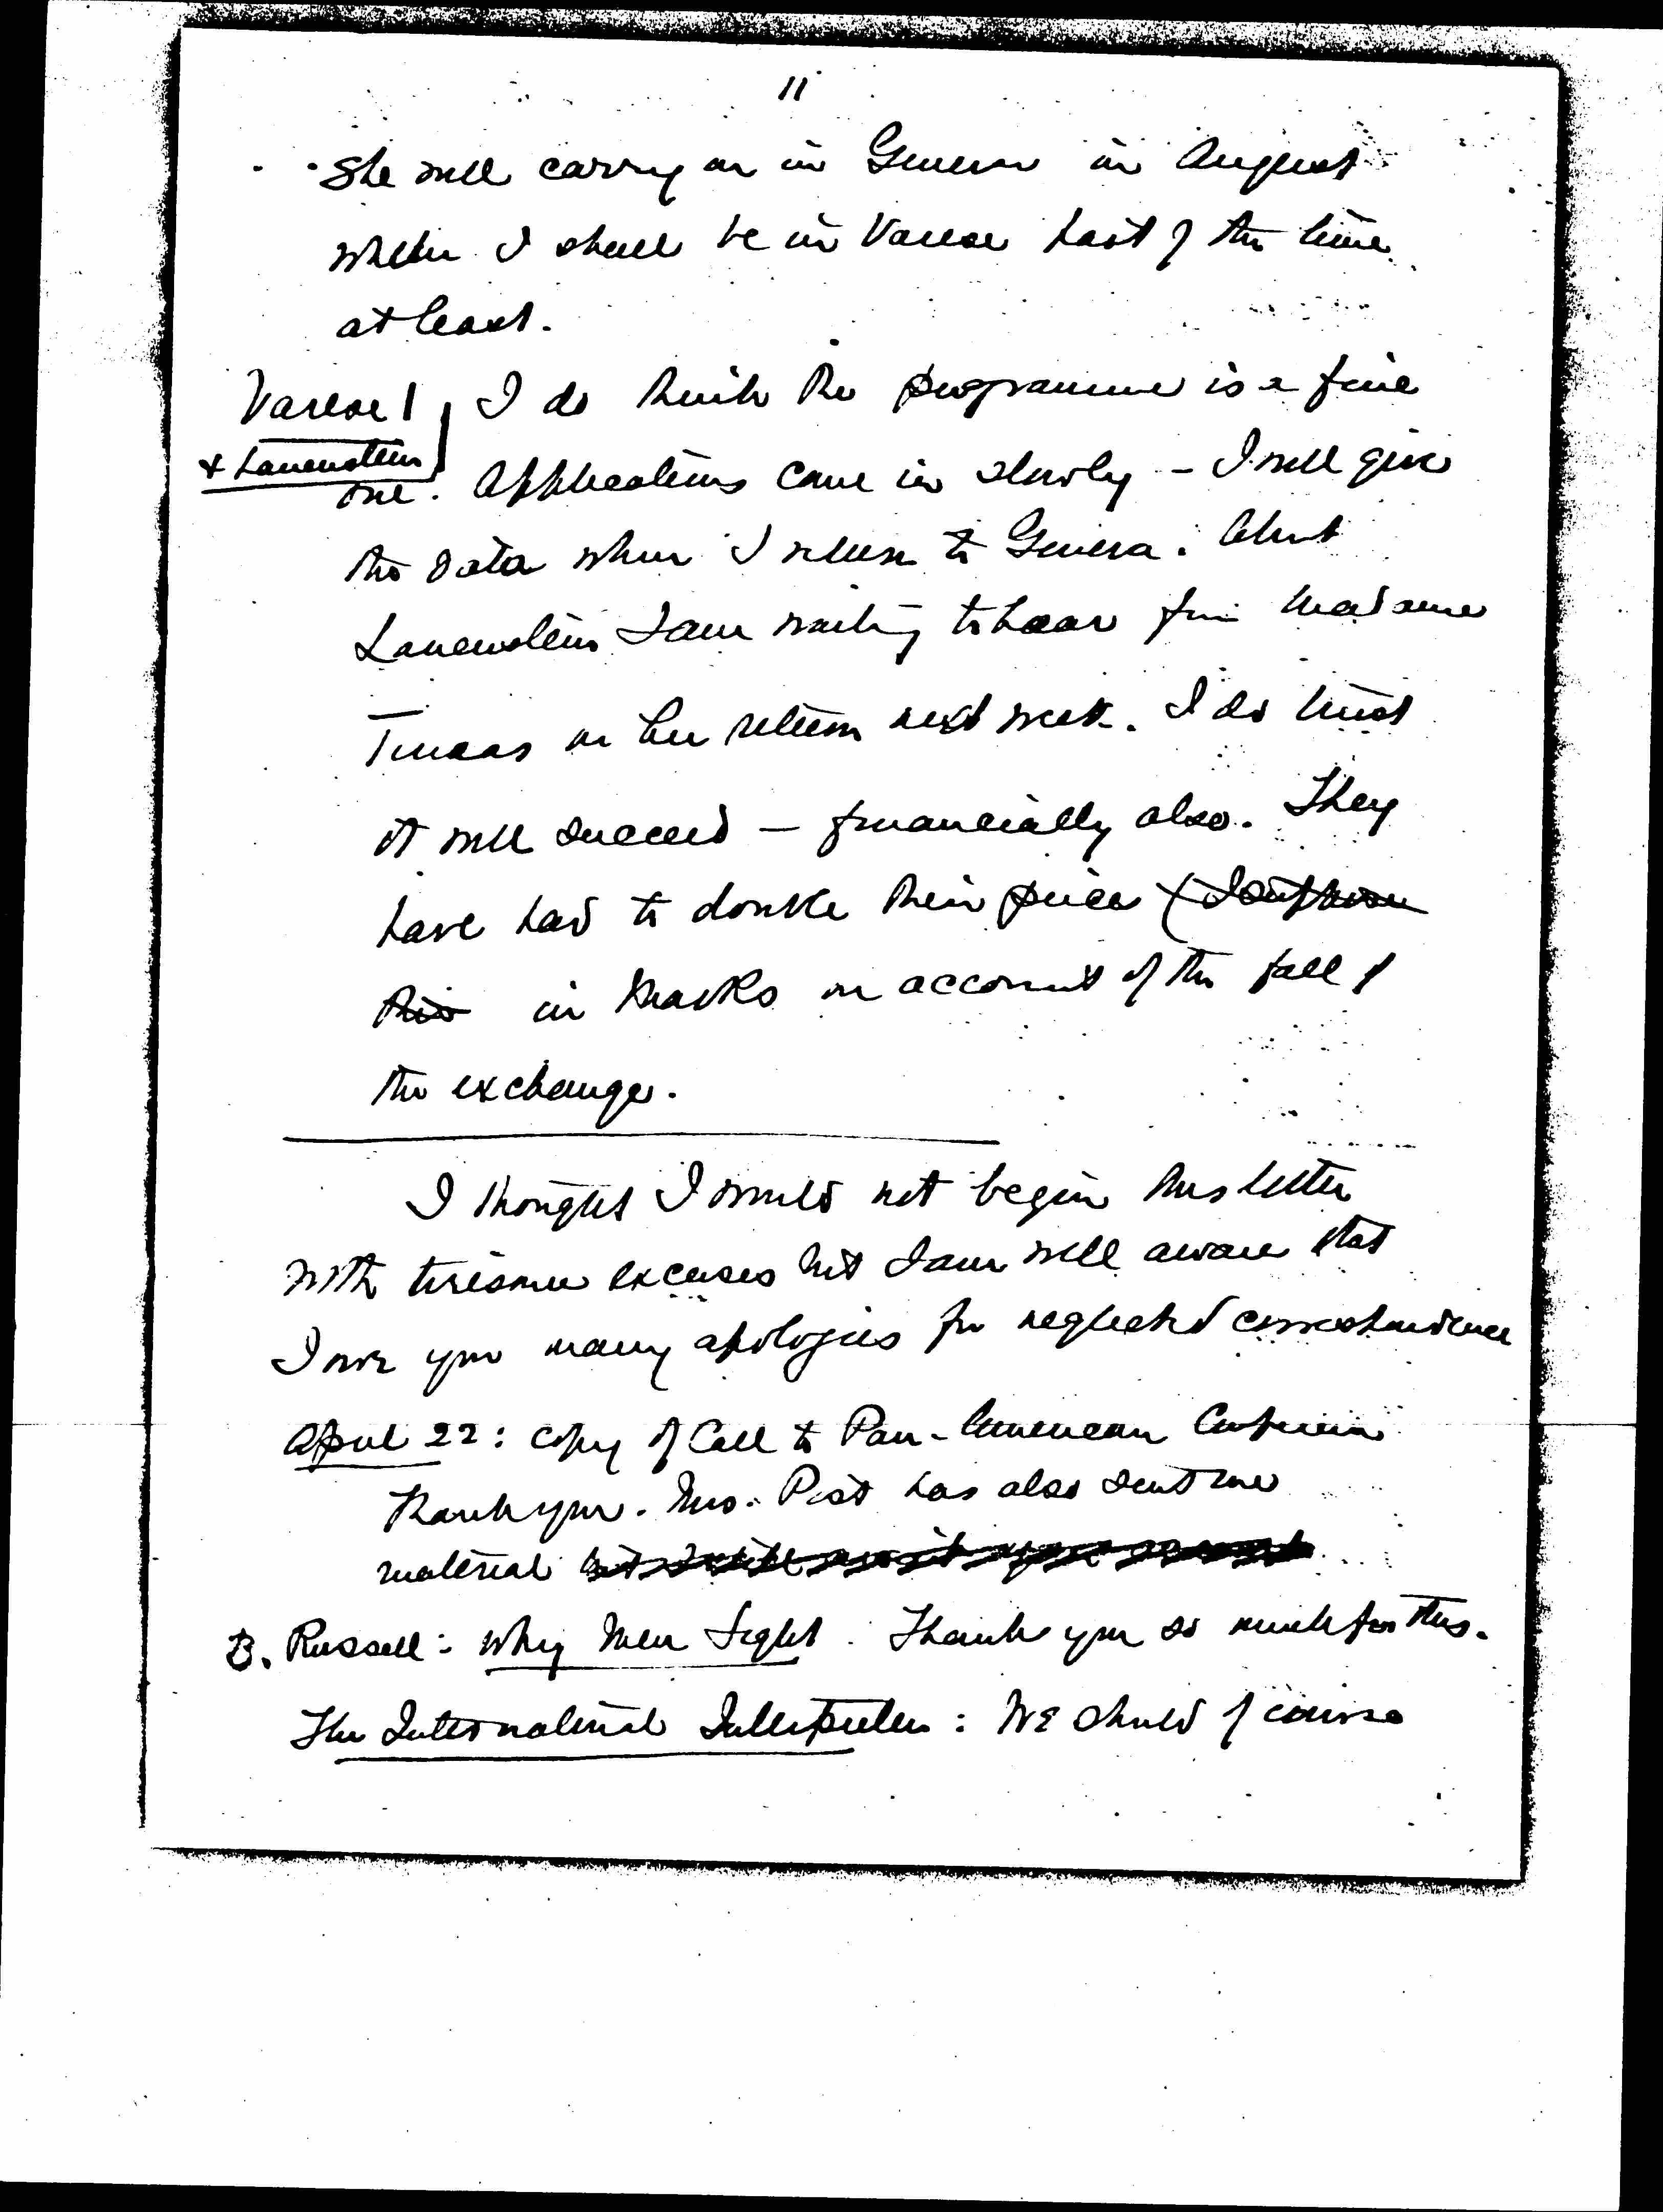 11
She will carry on in Geneva in August
when I shall be in Varese part of the time
at least.
Varese
& Lauenstein
I do think the programme is a fine
one. Applications come in slowly - I will give
the data when I return to Geneva. About
Lauenstein I am waiting to hear from Madame
on her return next week. I do trust
it will succeed — financially also. They
have had to double their price (I suppose
this in Marks on account of the fall of
the exchange.
I thought I would not begin this letter
with tiresome excuses but I am well aware that
I owe you many apologies for neglected correspondence
April 22: copy of Call to Pan-American Conference
Thank you. Mrs. Post has also sent me
material
B. Russell: Why Men Fight. Thank you so much for this.
The International Interpreter: We should of course